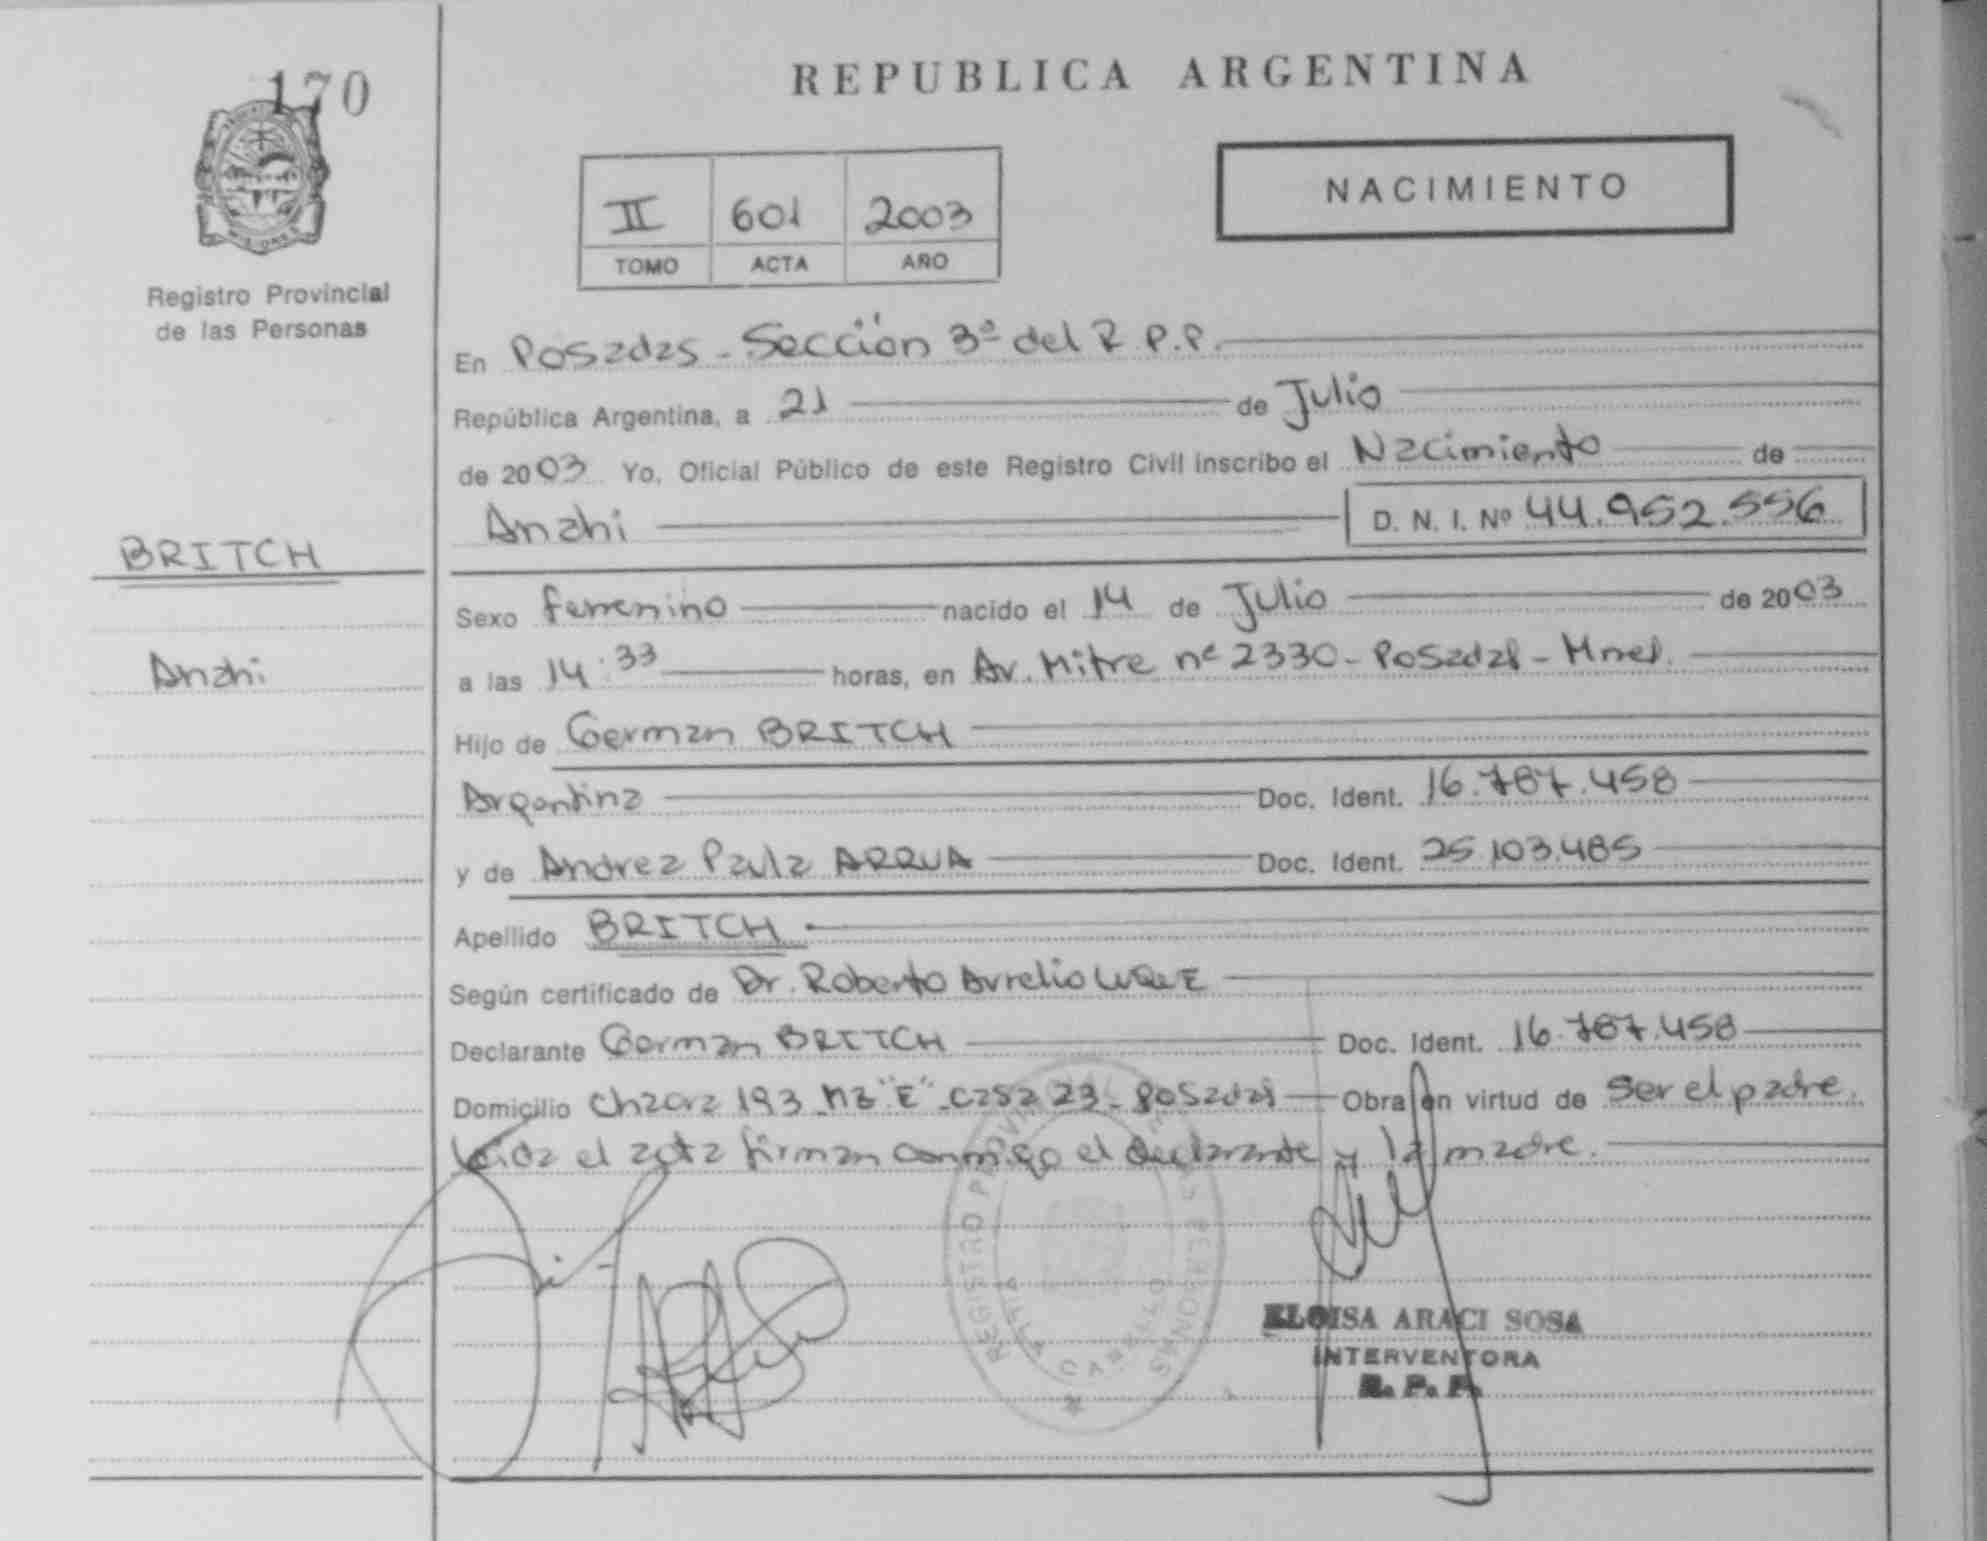 170
MISIONES
Registro Provincial
de las Personas
BRITCH
Anahi
REPUBLICA ARGENTINA
II 601 2003
TOMO ACTA AÑO
NACIMIENTO
En Posadas - Sección 3ª del R.P.P.
República Argentina, a 21 de Julio
de 2003 Yo, Oficial Público de este Registro Civil inscribo el Nacimiento de
Anahi D. N. I. Nº 44.952.556
Sexo femenino nacido el 14 de Julio de 2003
a las 14:33 horas, en Av. Mitre nº 2330 - Posadas - Mnes.
Hijo de German BRITCH
Argentina Doc. Ident. 16.787.458
y de Andrea Paula ARRUA Doc. Ident. 25.103.485
Apellido BRITCH
Según certificado de Dr. Roberto Aurelio LUQUE
Declarante German BRITCH Doc. Ident. 16.787.458
Domicilio Chacra 193 Mz "E" - casa 23 - Posadas Obra en virtud de ser el padre.
Leida el acta firman conmigo el declarante y la madre.
REGISTRO PROVINCIAL DE LAS PERSONAS
ELOISA ARACI SOSA
INTERVENTORA
R. P. P.